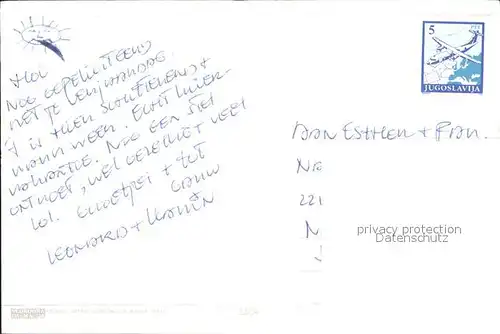 Hoi
Nog gefeliciteerd
met je verjaardag.
't is hier schitterend +
warm weer. Echt luier-
vakantie. Nog een stel
ontmoet, wel gezellig veel
lol. Groetjes + tot
gauw
Leonard + Karin
5
JUGOSLAVIJA
Aan Esther + Fran
N
221
N
privacy protection
Datenschutz